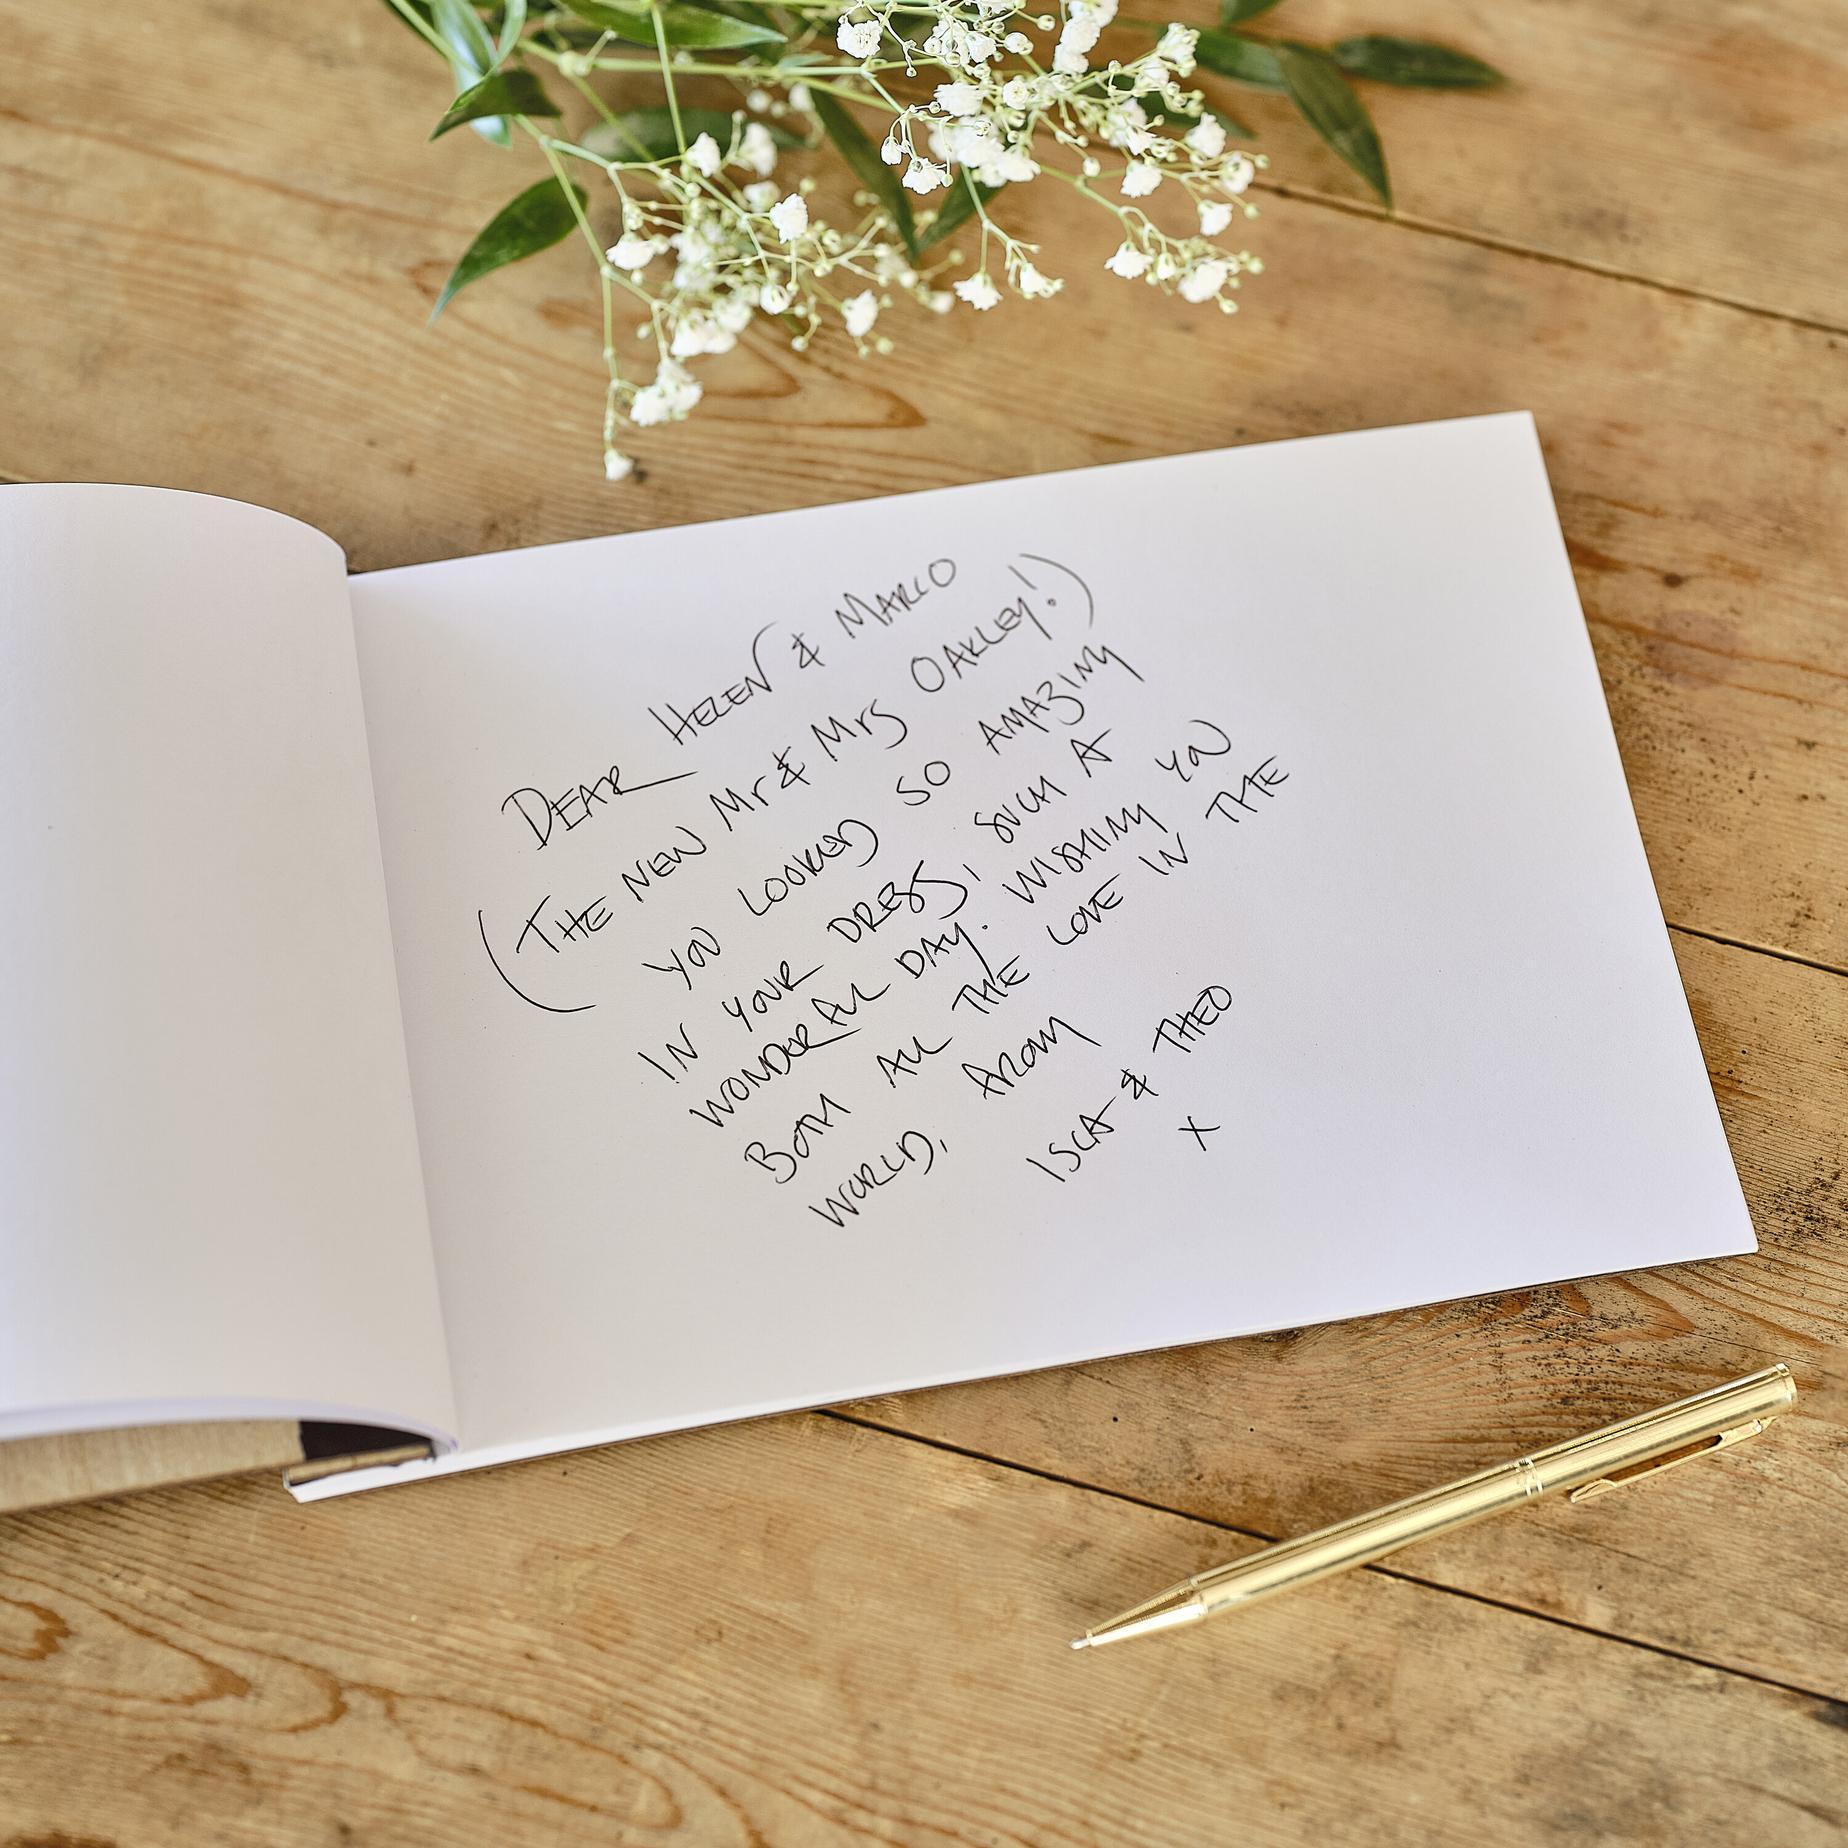 DEAR HELEN & MARCO
(THE NEW Mr & Mrs OAKLEY!)
YOU LOOKED SO AMAZING
IN YOUR DRESS, SUCH A
WONDERFUL DAY. WISHING YOU
BOTH ALL THE LOVE IN THE
WORLD,
ISCA & THEO
X